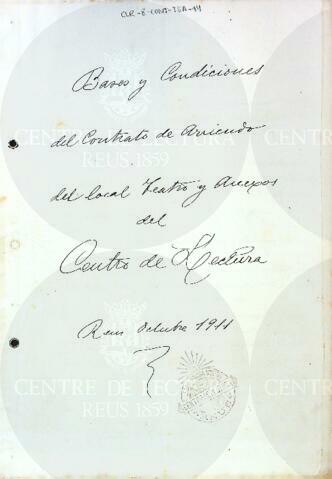 CLR-8-CONT-TEA-14
Bases y Condiciones
del Contrato de Arriendo
del local Teatro y Anexos
del
Centro de Lectura
Reus Octubre 1911
CENTRE DE LECTURA
REUS 1859
CENTRE DE LECTURA
REUS 1859